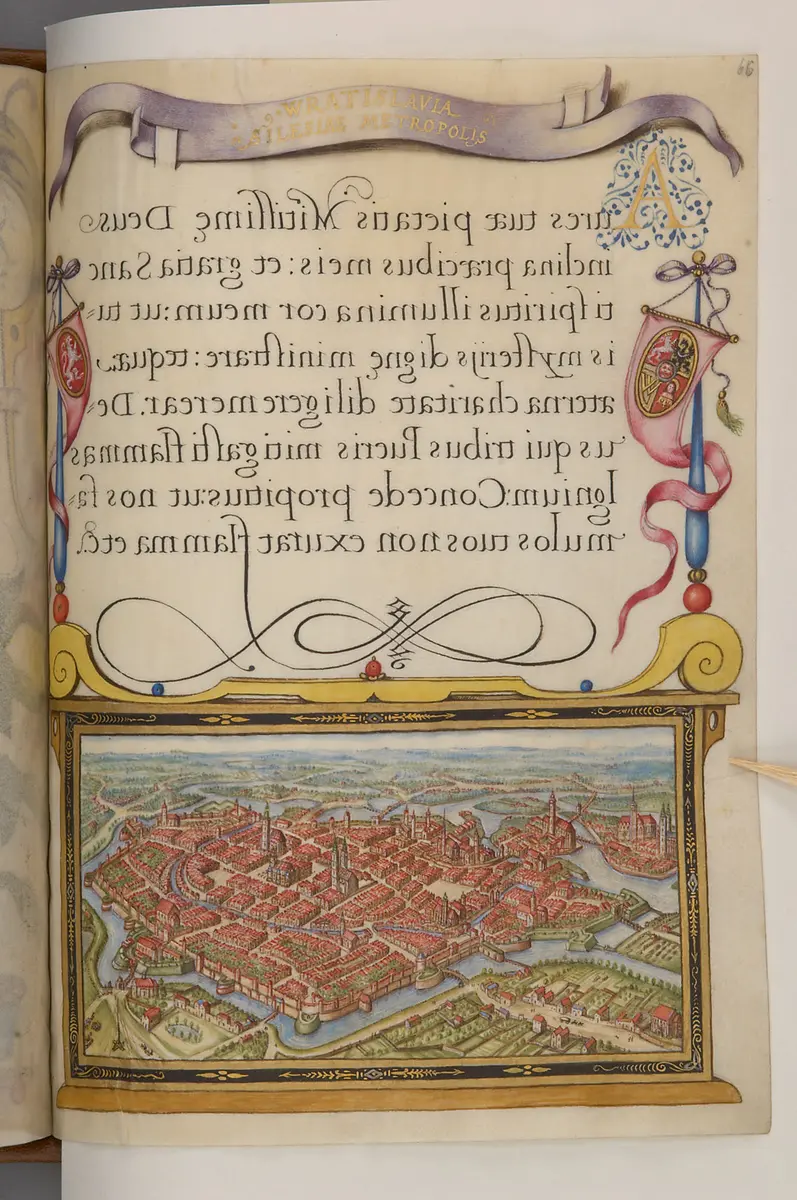 WRATISLAVIA
SILESIAE METROPOLIS
Aures tuæ pietatis Mitissimę Deus
inclina præcibus meis: et gratia Sanc
ti spiritus illumina cor meum: ut tu-
is mysterijs dignę ministrare: tequæ.
æterna charitate diligere merear. De-
us qui tribus Pueris mitigasti flammas
Ignium: Concede propitius: ut nos fa-
mulos tuos non exurat flamma etc.